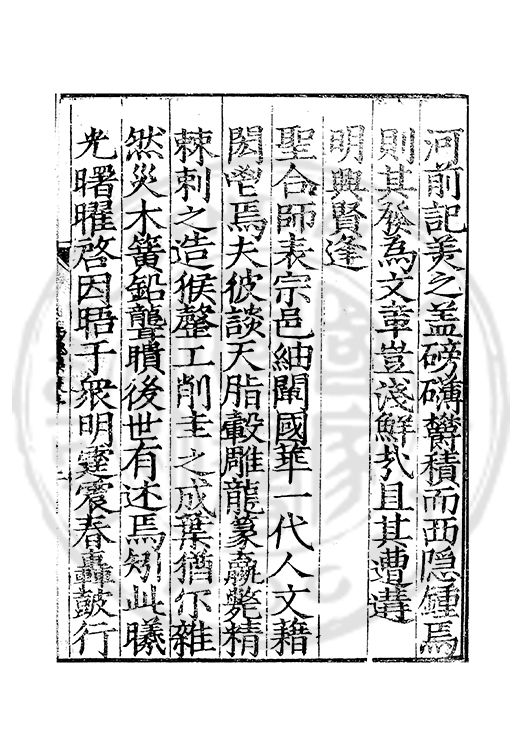 河前記美之盖磅礴欝積而西隠鍾焉
則其發為文章豈淺鮮哉且其遭遘
明興賢逢
聖合師表宗邑紬闡國華一代人文藉
閎鬯焉夫彼談天脂轂雕龍篆蠃斃精
棘刺之造猴罄工削圭之成葉猶仄雜
然災木簧鉛聾聵後世有述焉矧此曦
光曙曜啓因晤于衆明霆震春轟鼓行